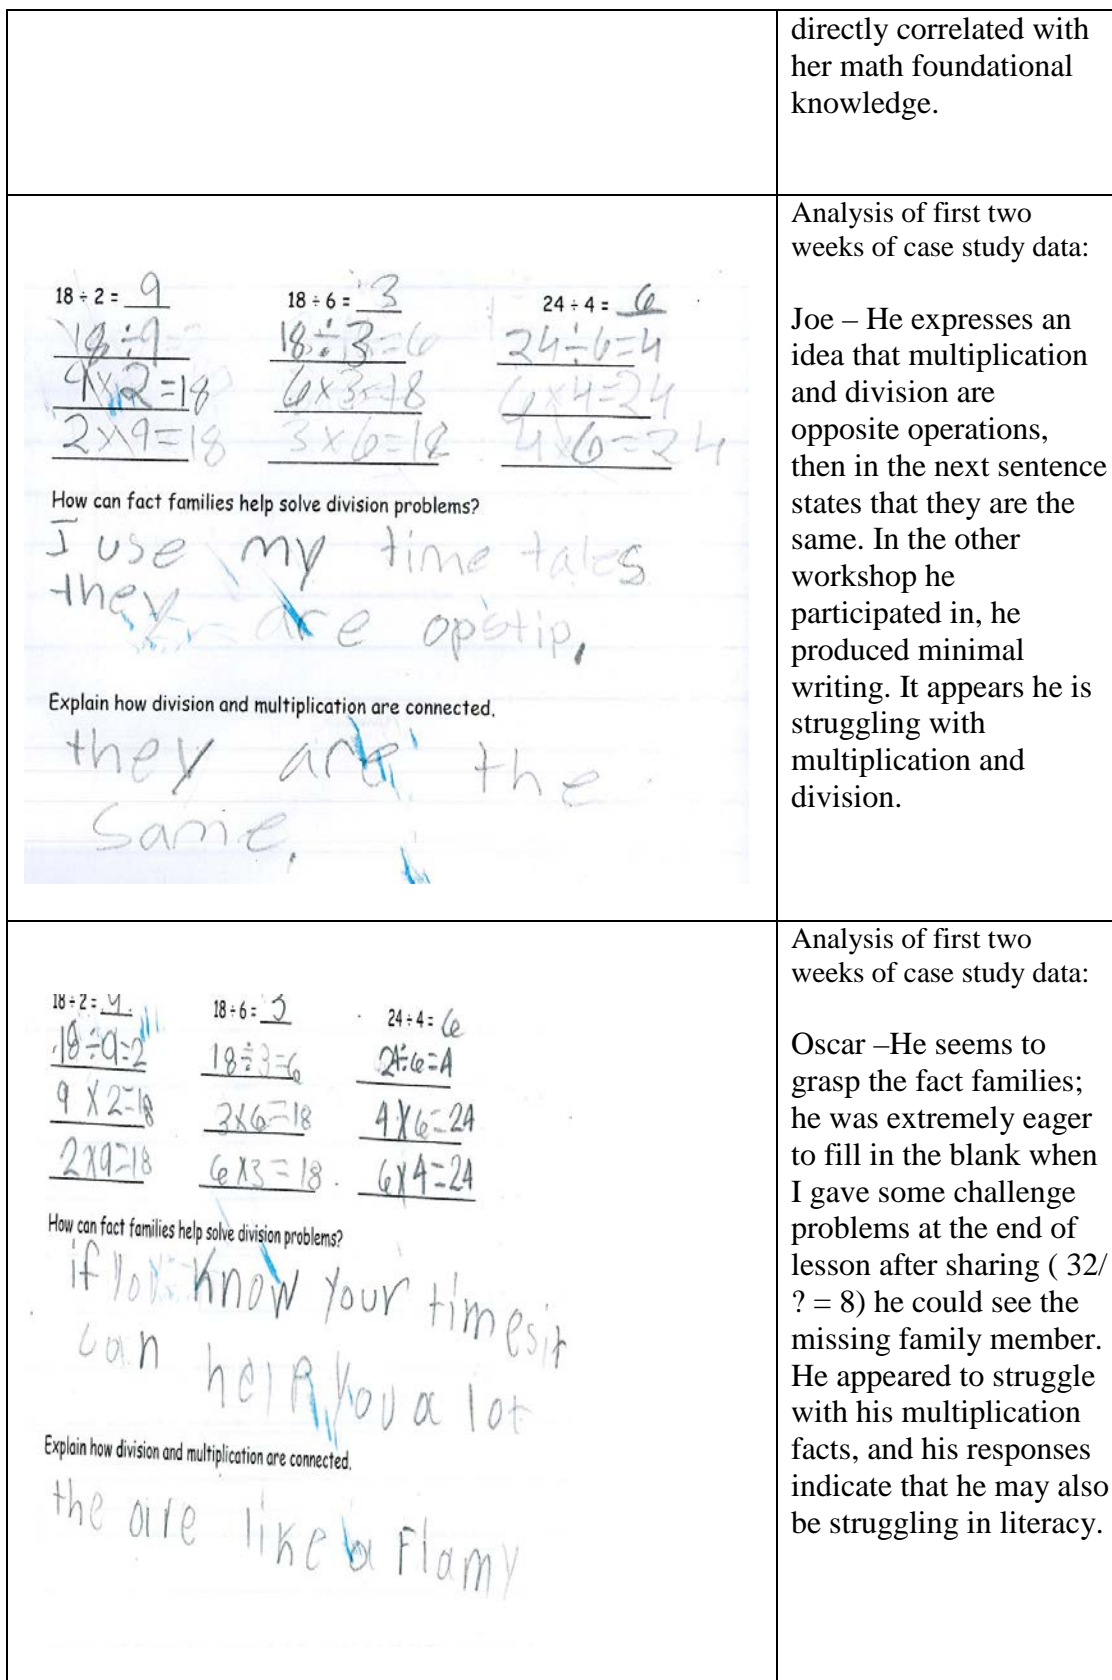 directly correlated with
her math foundational
knowledge.
18 ÷ 2 = 9
18 ÷ 6 = 3
24 ÷ 4 = 6
18÷9
18÷3=6
24÷6=4
9x2=18
6x3=18
6x4=24
2x9=18
3x6=18
4x6=24
How can fact families help solve division problems?
I use my time tales
they are opstip.
Explain how division and multiplication are connected.
they are the
same.
Analysis of first two
weeks of case study data:
Joe – He expresses an
idea that multiplication
and division are
opposite operations,
then in the next sentence
states that they are the
same. In the other
workshop he
participated in, he
produced minimal
writing. It appears he is
struggling with
multiplication and
division.
18 ÷ 2 = 9.
18 ÷ 6 = 3
24 ÷ 4 = 6
18÷9=2
18÷3=6
24÷6=4
9 x 2=18
3x6=18
4x6=24
2x9=18
6x3=18.
6x4=24
How can fact families help solve division problems?
if you know your times it
can help you a lot
Explain how division and multiplication are connected.
the are like a flamy
Analysis of first two
weeks of case study data:
Oscar –He seems to
grasp the fact families;
he was extremely eager
to fill in the blank when
I gave some challenge
problems at the end of
lesson after sharing ( 32/
? = 8) he could see the
missing family member.
He appeared to struggle
with his multiplication
facts, and his responses
indicate that he may also
be struggling in literacy.